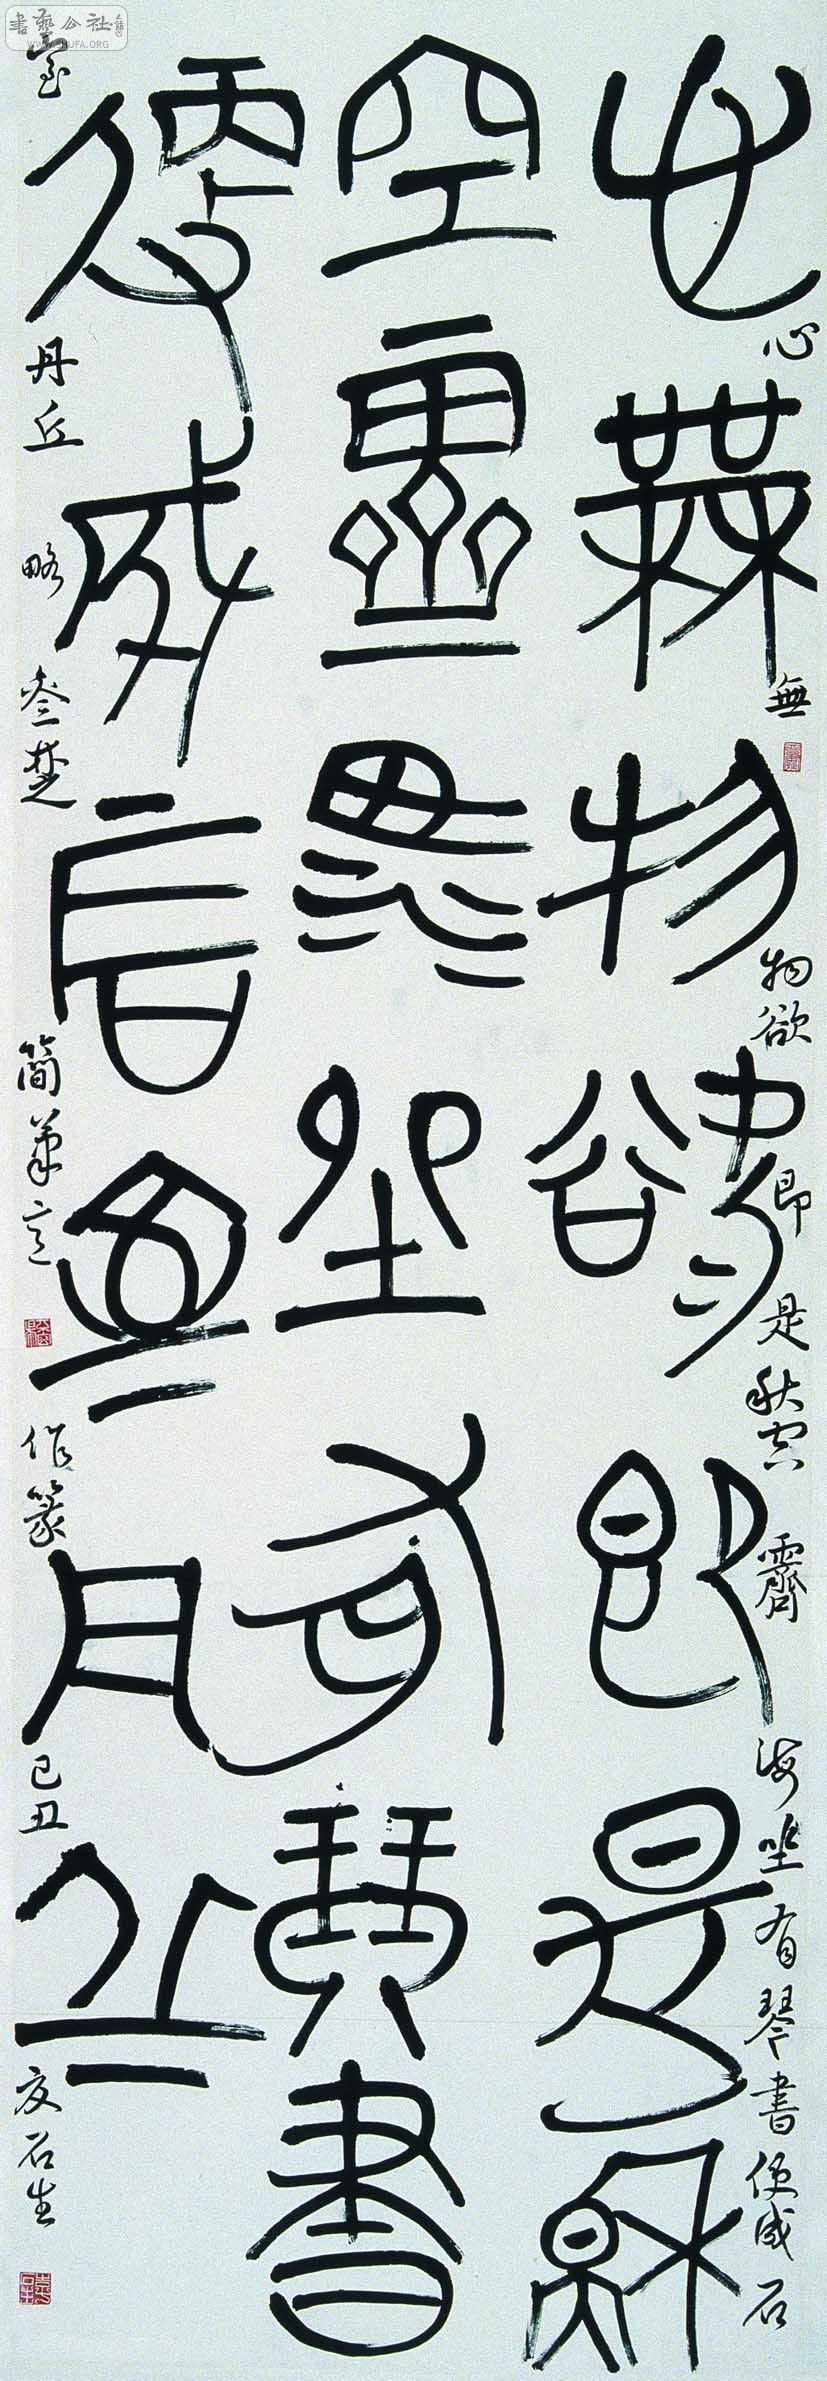 心無物欲即是秋
空霽海坐有琴書
便成石室丹丘
心無物欲即是秋空霽海坐有琴書便成石
室丹丘略参楚簡筆意作篆己丑友石生
書藝公社
WWW.SHUFA.ORG